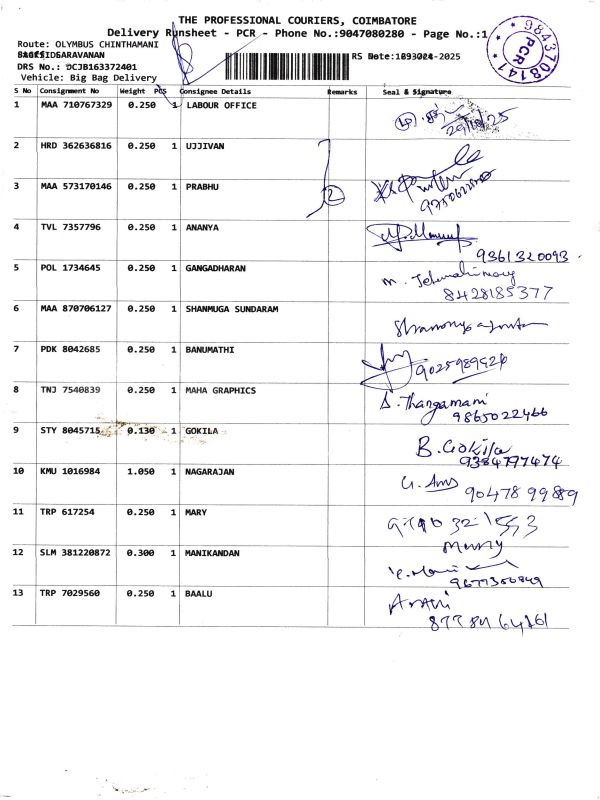 THE PROFESSIONAL COURIERS, COIMBATORE
Delivery Runsheet - PCR - Phone No.:9047080280 - Page No.:1
Route: OLYMBUS CHINTHAMANI
SARAVANAN
DRS No.: DCJB163372401
Vehicle: Big Bag Delivery
* 9843708141 * PCR
S No Consignment No Weight PCS Consignee Details Remarks Seal & Signature
1 MAA 710767329 0.250 1 LABOUR OFFICE
29/10/25
2 HRD 362636816 0.250 1 UJJIVAN
2
3 MAA 573170146 0.250 1 PRABHU
4 TVL 7357796 0.250 1 ANANYA
9361320093
5 POL 1734645 0.250 1 GANGADHARAN
8428185377
6 MAA 870706127 0.250 1 SHANMUGA SUNDARAM
7 PDK 8042685 0.250 1 BANUMATHI
8 TNJ 7540839 0.250 1 MAHA GRAPHICS
S. Thangamani
9865022466
9 STY 8045715 0.130 1 GOKILA
B. Gokila
9384797474
10 KMU 1016984 1.050 1 NAGARAJAN
90478 99889
11 TRP 617254 0.250 1 MARY
12 SLM 381220872 0.300 1 MANIKANDAN
13 TRP 7029560 0.250 1 BAALU